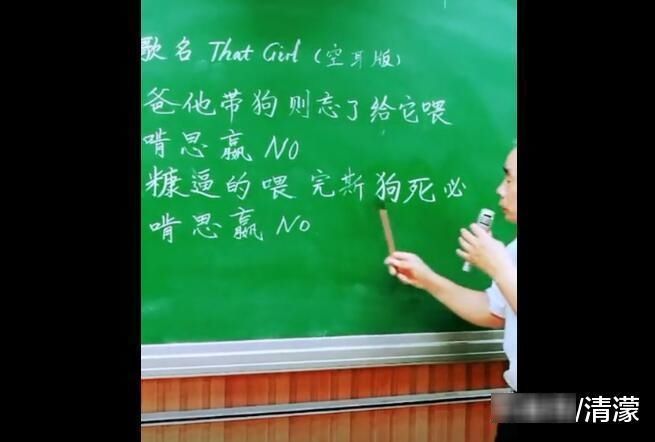 歌名 That Girl (空耳版)
爸他带狗则忘了给它喂
啃思赢 NO
糠逼的喂 完斯狗死必
啃思赢 No
/清濛